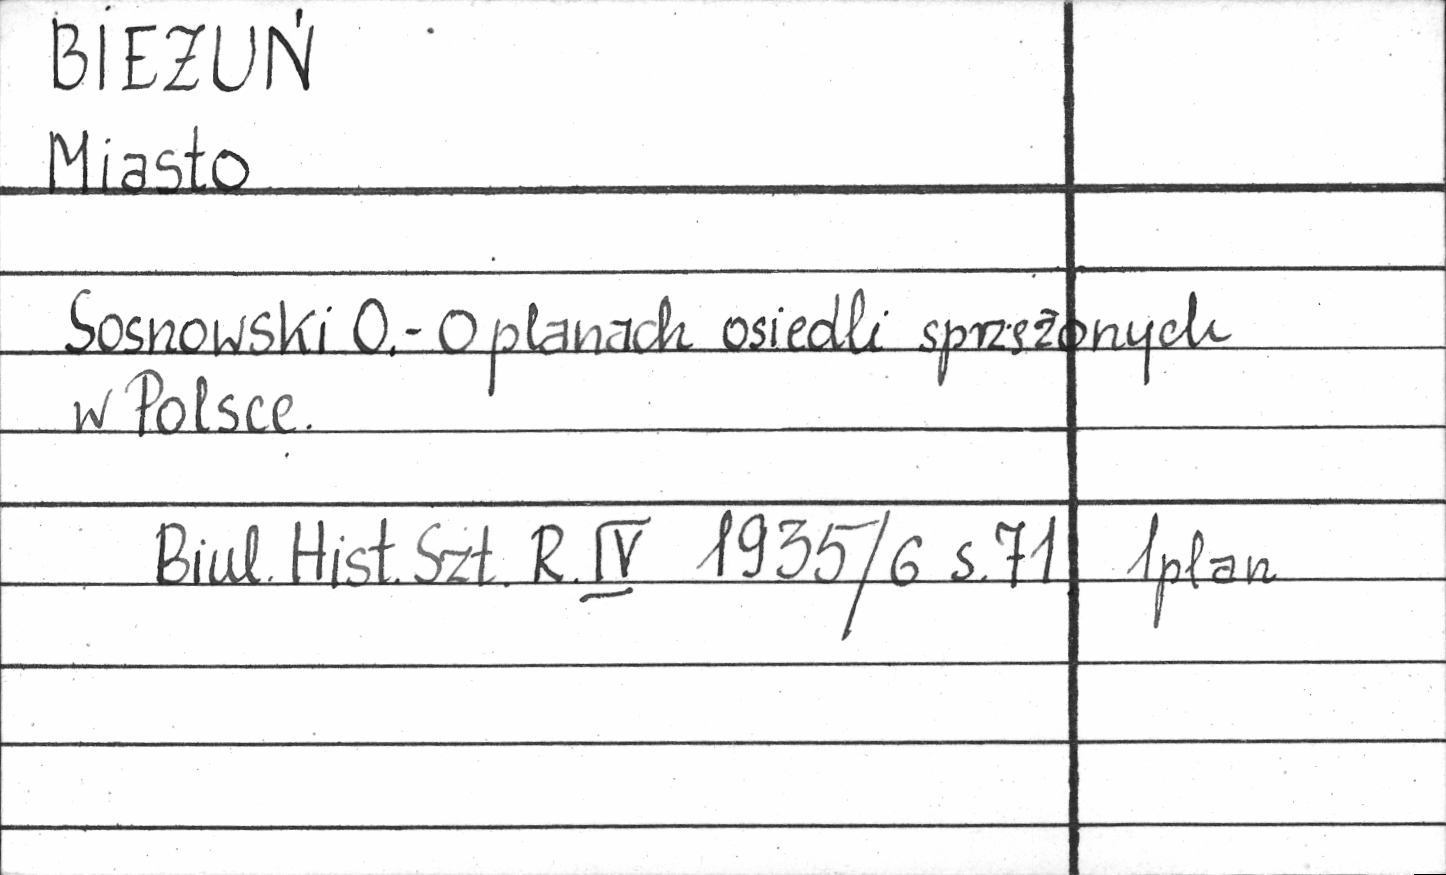 BIEŻUŃ
Miasto
Sosnowski O.- O planach osiedli sprzężonych
w Polsce.
Biul. Hist. Szt. R. IV 1935/6 s. 71 1 plan